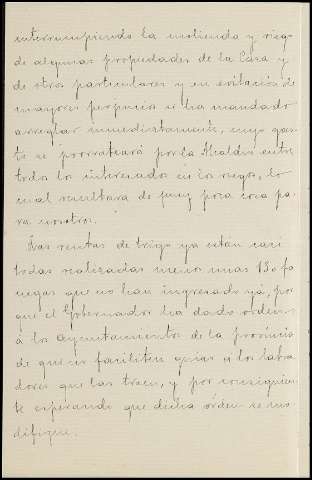 interrumpiendo la molienda y riego
de algunas propiedades de la Casa y
de otros particulares y en evitación de
mayores perjuicios se ha mandado
arreglar inmediatamente, cuyo gas-
to se prorrateará por la Alcaldía entre
todos los interesados en los riegos, lo
cual resultara de muy poca cosa pa-
ra nosotros.
Las rentas de trigo ya están casi
todas realizadas menos unas 130 fa-
negas que no han ingresado ya, por
que el Gobernador ha dado ordenes
á los ayuntamientos de la provincia
de que no faciliten guias a los labra
dores que las traen, y por consiguien
te esperando que dicha órden se mo
difique.